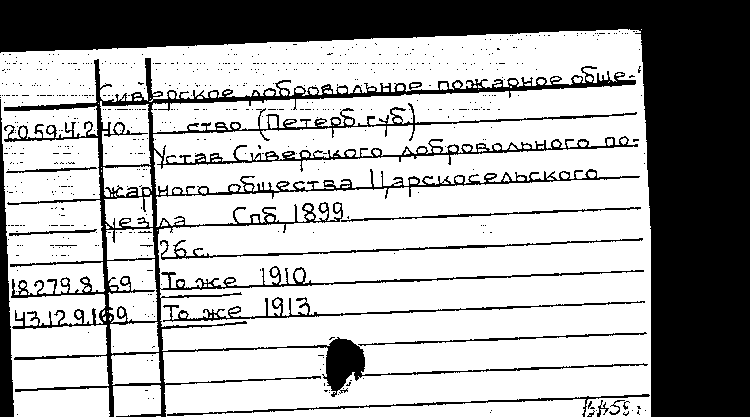 Сиверское добровольное пожарное обще-
20.59.4.240. ство (Петерб. губ.)
Устав Сиверского добровольного по-
жарного общества Царскосельского
уезда Спб, 1899.
26 с.
18.279.8.69. То же 1910.
43.12.9.169. То же 1913.